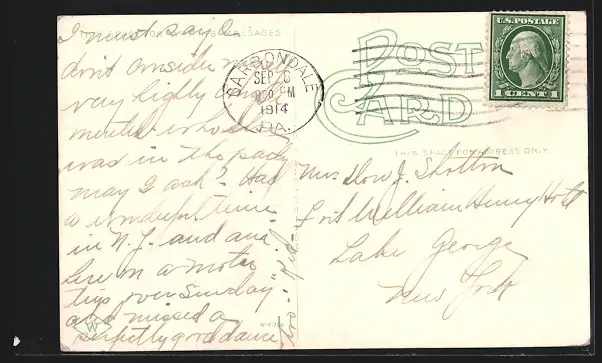 I must say I
don't consider my
very highly
was in the party
may I ask? Had
a wonderful time
in N.J. and am
here on a motor
trip over Sunday
and missed a
perfectly good dance
MESSAGES
CARBONDALE
SEP 6
PM
1914
PA.
POST
CARD
U.S. POSTAGE
1 CENT 1
THIS SPACE FOR ADDRESS ONLY
Mrs. J. Shotton
Fort William Henry Hotel
Lake George
New York
W